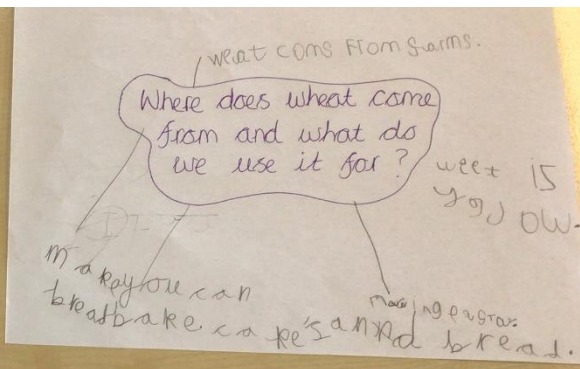 weat coms from farms.
Where does wheat come
from and what do
we use it for?
weet is
yoglow.
make you can
breab bake cake's annd bread.